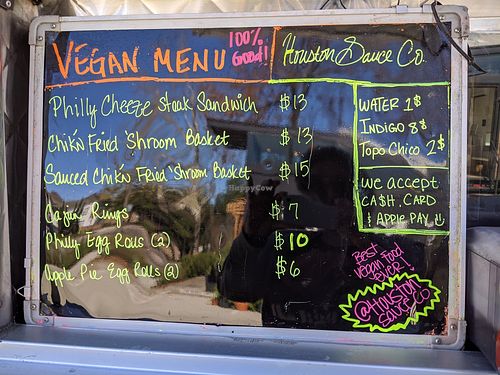 VEGAN MENU 100% Good!
Houston Sauce Co.
Philly Cheeze Steak Sandwich $13
Chik'n Fried 'Shroom Basket $13
Sauced Chik'n Fried 'Shroom Basket $15
Cajun Rings $7
Philly Egg Rolls (2) $10
Apple Pie Egg Rolls (2) $6
WATER 1$
INDIGO 8$
TOPO CHICO 2$
We accept
CA$H, CARD
& APPLE PAY
Best
vegan food
ever!
@Houston
Sauce Co
HappyCow